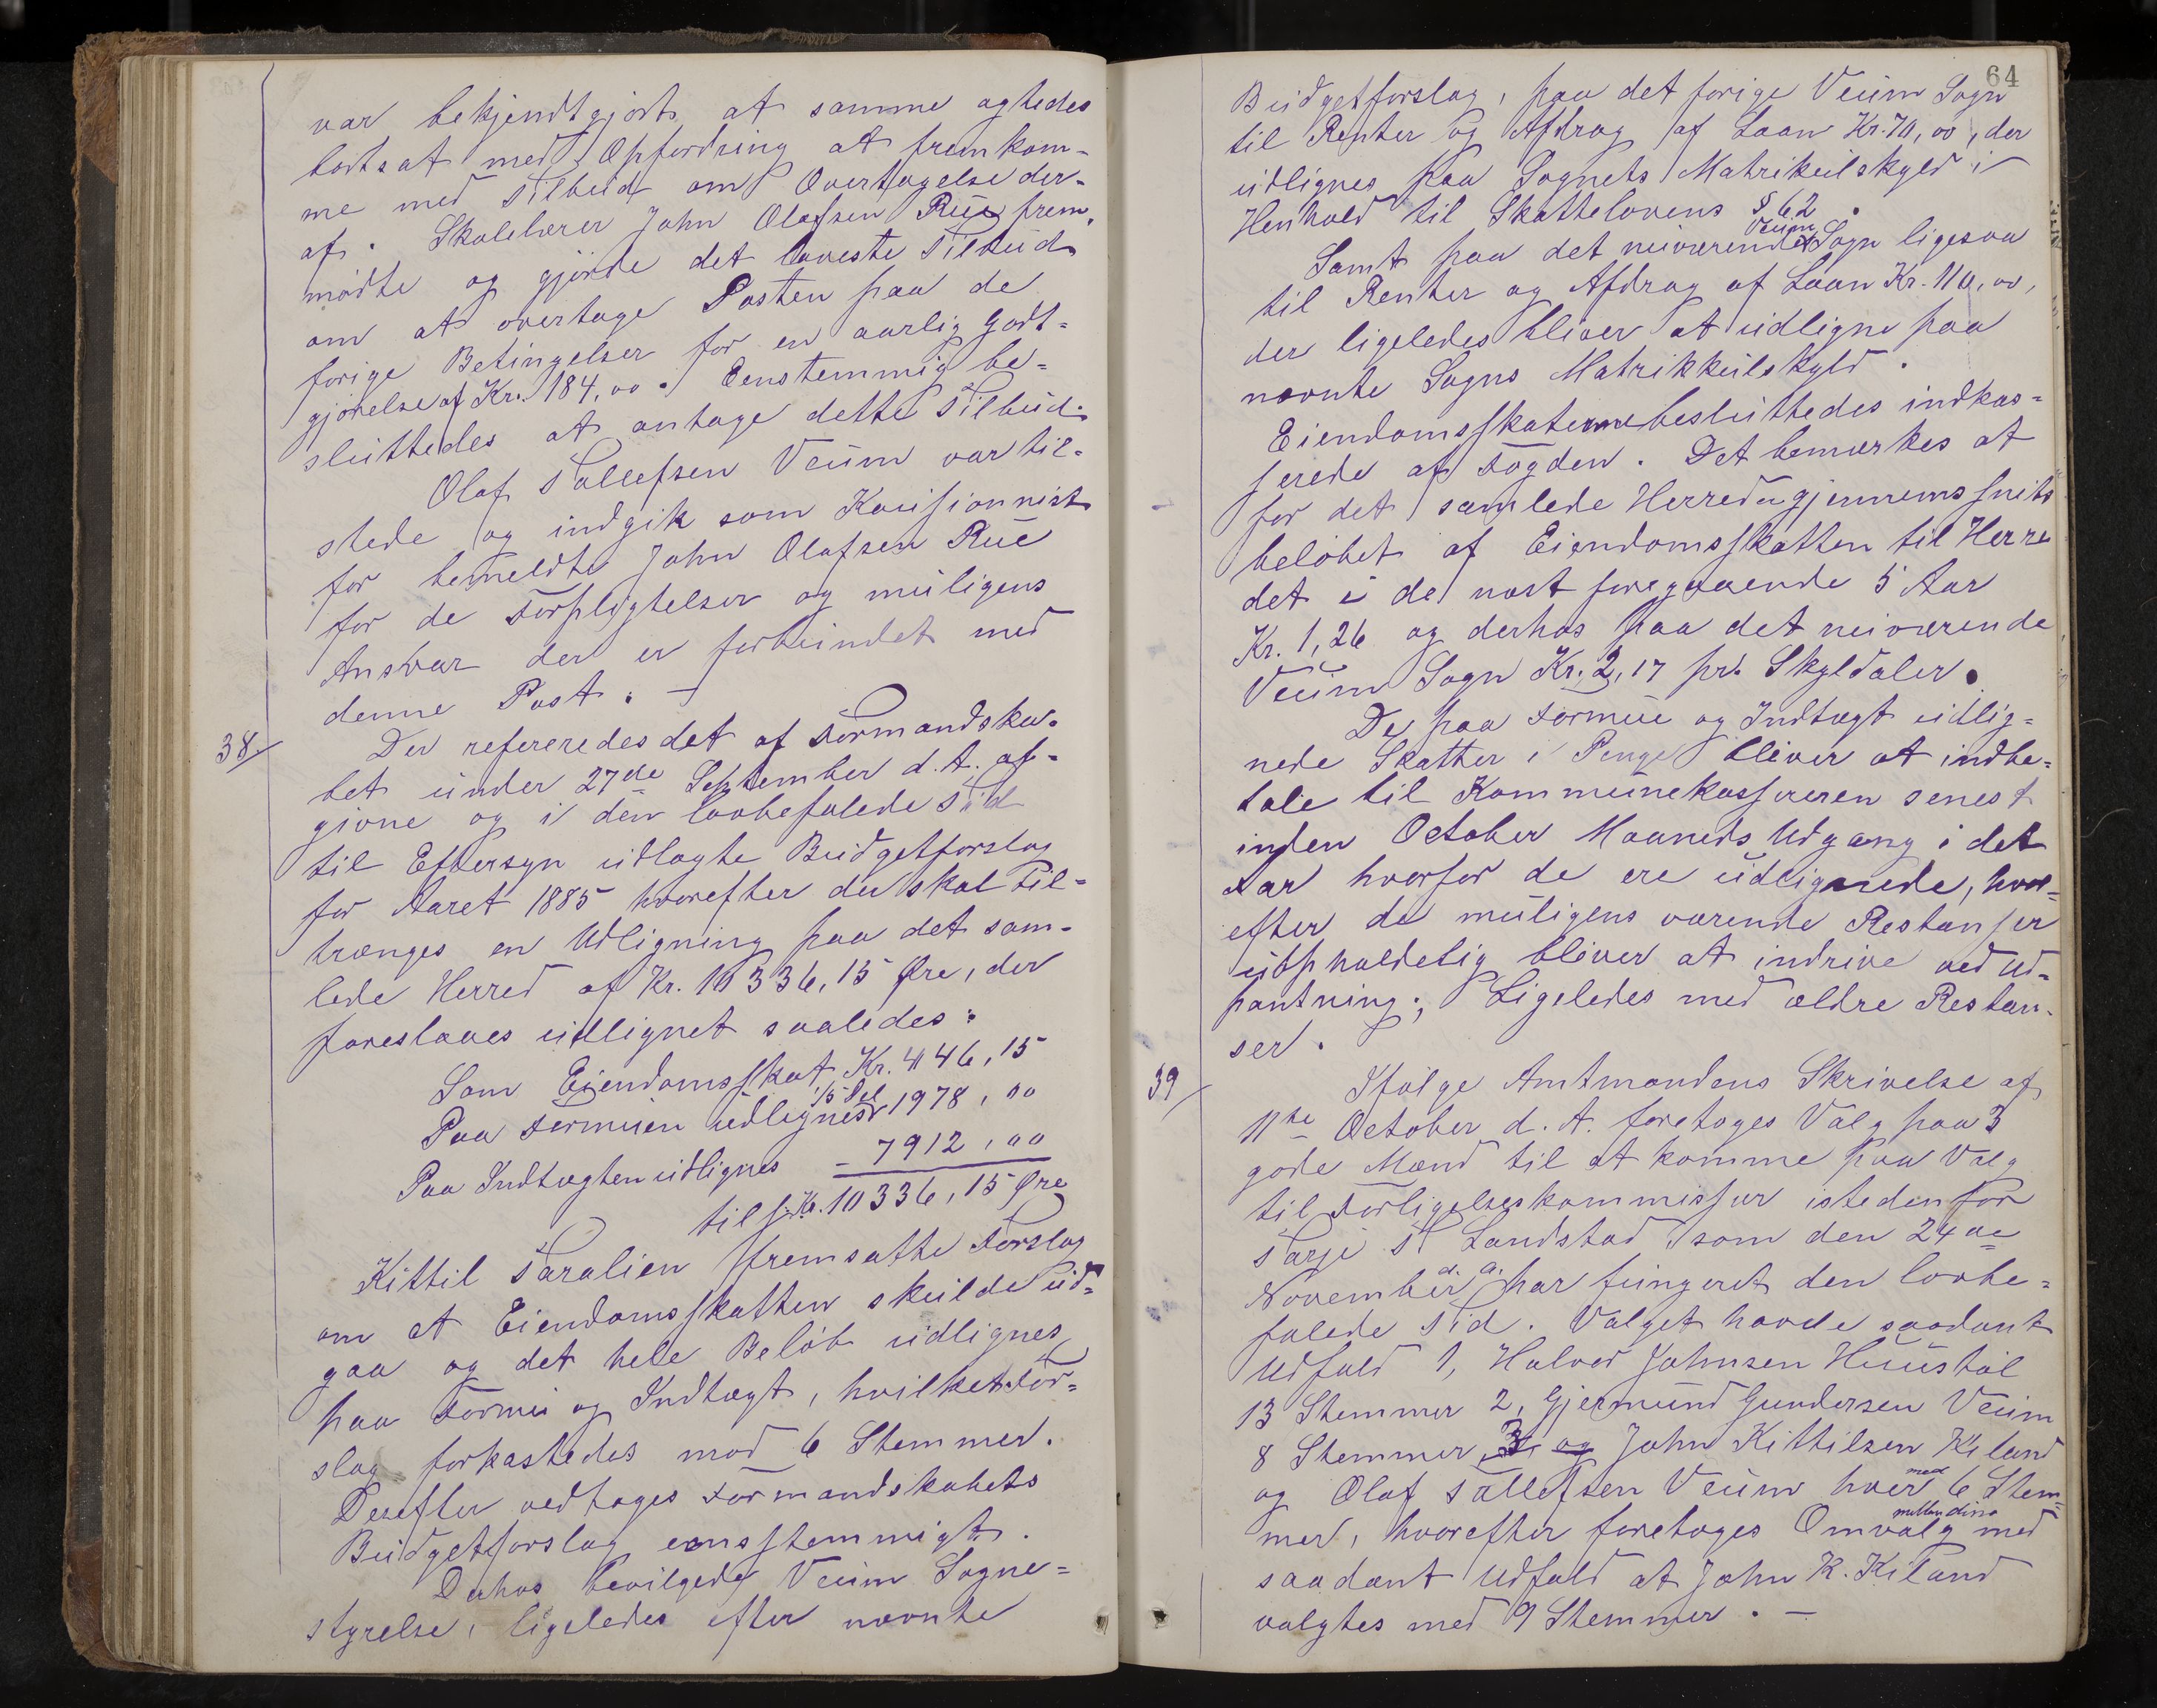 var bekjendtgjort at samme agtedes
bortsat med Opfordring at fremkom-
me med Tilbud om Overtagelse der-
af. Skolelærer John Olafsen Rue frem-
mødte og gjorde det laveste Tilbud
om at overtage Posten paa de
forige Betingelser for en aarlig Godt-
gjørelse af Kr. 184,00. Eenstemmig be-
sluttedes at antage dette Tilbud.
Olaf Tallefsen Veum var til-
stede og indgik som Kausionnist
for bemeldte John Olafsen Rue
for de Forpligtelser og muligens
Ansvar der er forbundet med
denne Post. –
38/ Der refereredes det af Formandska-
bet under 27de September d. A. af-
givne og i den lovbefalede Tid
til Eftersyn udlagte Budgetforslag
for Aaret 1885 hvorefter der skal til-
trænges en Udligning paa det sam-
lede Herred af Kr. 10336,15 Øre, der
foreslaaes udlignet saaledes:
Som Eiendomsskat Kr. 446,15
Paa Formuen udlignes 1/5 Del 1978,00
Paa Indtægten udlignes – 7912,00
tils. Kr. 10336,15 Øre
Kittil Taralien fremsatte Forslag
om at Eiendomsskatten skulde ud-
gaa og det hele Beløb udlignes
paa Formu og Indtægt, hvilket For-
slag forkastedes mod 6 Stemmer.
Derefter vedtoges Formandskabets
Budgetforslag eensstemmigt.
Derhos bevilgede Veum Sogne-
styrelse, ligeledes efter nævnte
64
Budgetforslag, paa det forige Veum Sogn
til Renter og Afdrag af Laan Kr. 70,00, der
udlignes paa Sognets Matrikulskyld i
Henhold til Skattelovens § 62.
Samt paa det nuværende Veum Sogn ligesaa
til Renter og Afdrag af Laan Kr. 110,00,
der ligeledes bliver at udligne paa
nævnte Sogns Matrikkulskyld.
Eiendomsskaterne besluttedes indkas-
serede af Fogden. Det bemærkes at
for det samlede Herred er gjennemssnits
beløbet af Eiendomsskatten til Herre
det i de næst foregaaende 5 Aar
Kr. 1,26 og derhos paa det nuværende
Veum Sogn Kr. 2,17 pr. Skyldaler.
De paa Formue og Indtægt udlig-
nede Skatter i Penge bliver at indbe-
tale til Kommunekassereren senest
inden October Maaneds Udgang i det
Aar hvorfor de ere udlignede, hvor-
efter de muligens værende Restanser
uopholdelig bliver at indrive ved Ud-
pantning; Ligeledes med ældre Restan-
ser.
39/ Ifølge Amtmandens Skrivelse af
11te October d. A. foretoges Valg paa 3
gode Mænd til at komme paa Valg
til Forligelseskommissær istedenfor
Tarje T Landstad som den 24de
November d. A. har fungeret den lovbe-
falede Tid. Valget havde saadant
Udfald 1, Halvor Johnsen Huustøl
13 Stemmer 2, Gjermund Gundersen Veum
8 Stemmer, 3, og John Kittilsen Kiland
og Olaf Tallefsen Veum hver med 6 Stem-
mer, hvorefter foretoges Omvalg mellem disse med
saadant Udfald at John K. Kiland
valgtes med 9 Stemmer. –